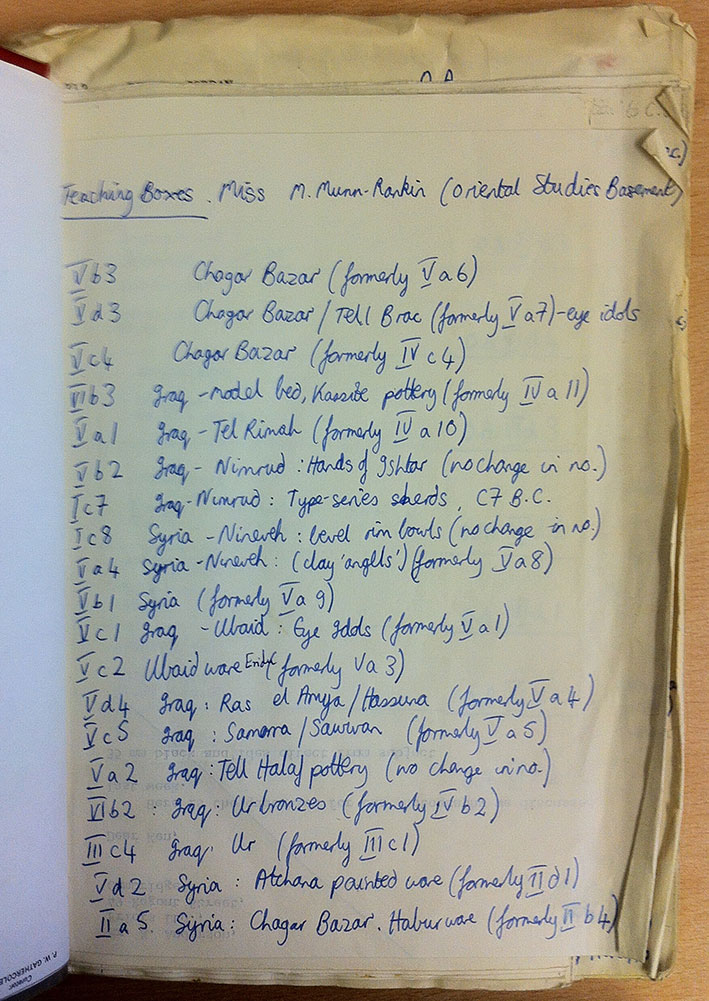 Teaching Boxes. Miss M. Munn-Rankin (Oriental Studies Basement)
Vb3 Chagar Bazar (formerly Va6)
Vd3 Chagar Bazar / Tell Brac (formerly Va7) - eye idols
Vc4 Chagar Bazar (formerly IVc4)
VIIb3 Iraq - model bed, Kassite pottery (formerly IVa11)
Va1 Iraq - Tel Rimah (formerly IVa10)
Vb2 Iraq - Nimrud : Hands of Ishtar (no change in no.)
Ic7 Iraq - Nimrud : Type-series sherds, C7 B.C.
Ic8 Syria - Nineveh : level rim bowls (no change in no.)
Va4 Syria - Nineveh : (clay 'anglls') (formerly Va8)
Vb1 Syria (formerly Va9)
Vc1 Iraq - Ubaid : Eye Idols (formerly Va1)
Vc2 Ubaid ware (formerly Va3)
Vd4 Iraq : Ras el Amya / Hassuna (formerly Va4)
Vc5 Iraq : Samarra / Sawwan (formerly Va5)
Va2 Iraq : Tell Halaf pottery (no change in no.)
VIb2 : Iraq : Ur bronzes (formerly IVb2)
IIIc4 Iraq. Ur (formerly IIIc1)
Vd2 Syria : Atchana painted ware (formerly IId1)
IIa5 Syria : Chagar Bazar. Habur ware (formerly IIb4)
P. W. GATHERCOLE
Curator